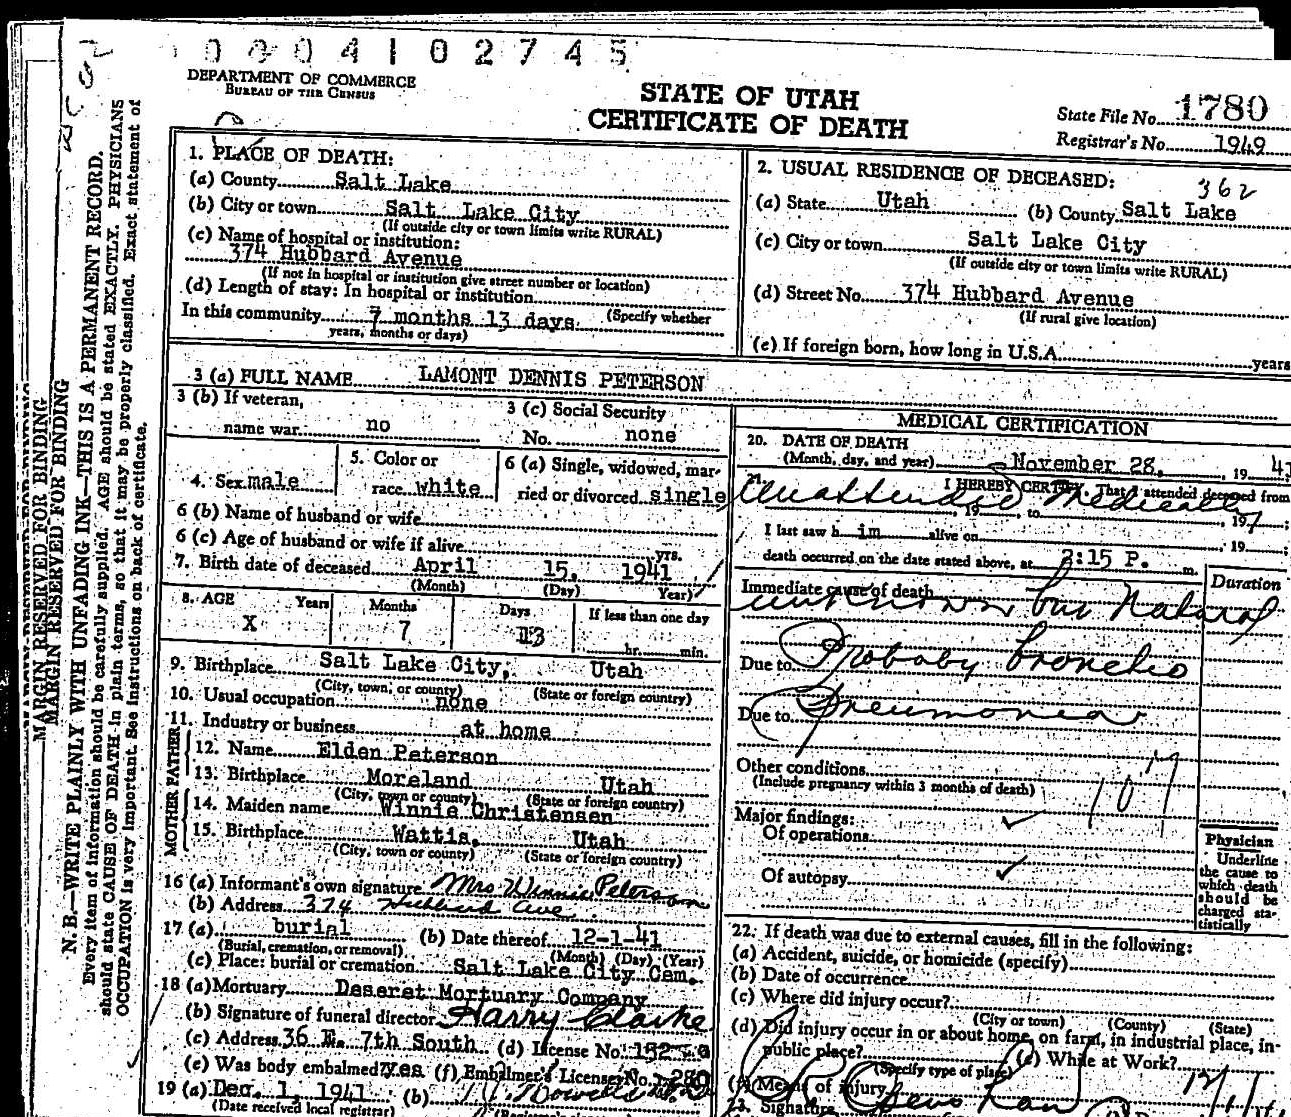 0004102745
DEPARTMENT OF COMMERCE
BUREAU OF THE CENSUS
STATE OF UTAH
CERTIFICATE OF DEATH
State File No. 1780
Registrar's No. 1949
MARGIN RESERVED FOR BINDING
MARGIN RESERVED FOR BINDING
N. B.—WRITE PLAINLY WITH UNFADING INK—THIS IS A PERMANENT RECORD.
Every item of information should be carefully supplied. AGE should be stated EXACTLY. PHYSICIANS
should state CAUSE OF DEATH in plain terms, so that it may be properly classified. Exact statement of
OCCUPATION is very important. See instructions on back of certificate.
1. PLACE OF DEATH:
(a) County Salt Lake
(b) City or town Salt Lake City
(If outside city or town limits write RURAL)
(c) Name of hospital or institution:
374 Hubbard Avenue
(If not in hospital or institution give street number or location)
(d) Length of stay: In hospital or institution
In this community 7 months 13 days (Specify whether
years, months or days)
2. USUAL RESIDENCE OF DECEASED:
362
(a) State Utah (b) County Salt Lake
(c) City or town Salt Lake City
(If outside city or town limits write RURAL)
(d) Street No. 374 Hubbard Avenue
(If rural give location)
(e) If foreign born, how long in U.S.A. years
3 (a) FULL NAME LAMONT DENNIS PETERSON
3 (b) If veteran,
name war no
3 (c) Social Security
No. none
4. Sex male
5. Color or
race white
6 (a) Single, widowed, mar-
ried or divorced single
6 (b) Name of husband or wife
6 (c) Age of husband or wife if alive yrs.
7. Birth date of deceased April 15, 1941
(Month) (Day) Year)
8. AGE Years Months Days If less than one day
X 7 13 hr. min.
9. Birthplace Salt Lake City, Utah
(City, town, or county) (State or foreign country)
10. Usual occupation none
11. Industry or business at home
FATHER
12. Name Elden Peterson
13. Birthplace Moreland Utah
(City, town or county) (State or foreign country)
MOTHER
14. Maiden name Winnie Christensen
15. Birthplace Wattis, Utah
(City, town or county) (State or foreign country)
16 (a) Informant's own signature Mrs Winnie Peterson
(b) Address 374 Hubbard Ave.
17 (a) burial (b) Date thereof 12-1-41
(Burial, cremation, or removal) (Month) (Day) (Year)
(c) Place: burial or cremation Salt Lake City Cem.
18 (a) Mortuary Deseret Mortuary Company
(b) Signature of funeral director Harry Clarke
(c) Address 36 E. 7th South (d) License No.
(e) Was body embalmed? yes (f) Embalmer's License No. 280
19 (a) Dec. 1, 1941 (b)
(Date received local registrar)
MEDICAL CERTIFICATION
20. DATE OF DEATH
(Month, day, and year) November 28, 19 41
21. I HEREBY CERTIFY, That I attended deceased from
Unattended Medically
, 19 , to , 19 ;
I last saw h im alive on , 19 ;
death occurred on the date stated above, at 2:15 P. m.
Duration
Immediate cause of death
unknown but Natural
Due to Probaby broncho
Due to Pneumonia
Other conditions
(Include pregnancy within 3 months of death)
107
Major findings:
Of operations
Of autopsy
Physician
Underline
the cause to
which death
should be
charged sta-
tistically
22. If death was due to external causes, fill in the following:
(a) Accident, suicide, or homicide (specify)
(b) Date of occurrence
(c) Where did injury occur?
(City or town) (County) (State)
(d) Did injury occur in or about home, on farm, in industrial place, in
public place? (e) While at Work?
(Specify type of place)
(f) Means of injury
23. Signature